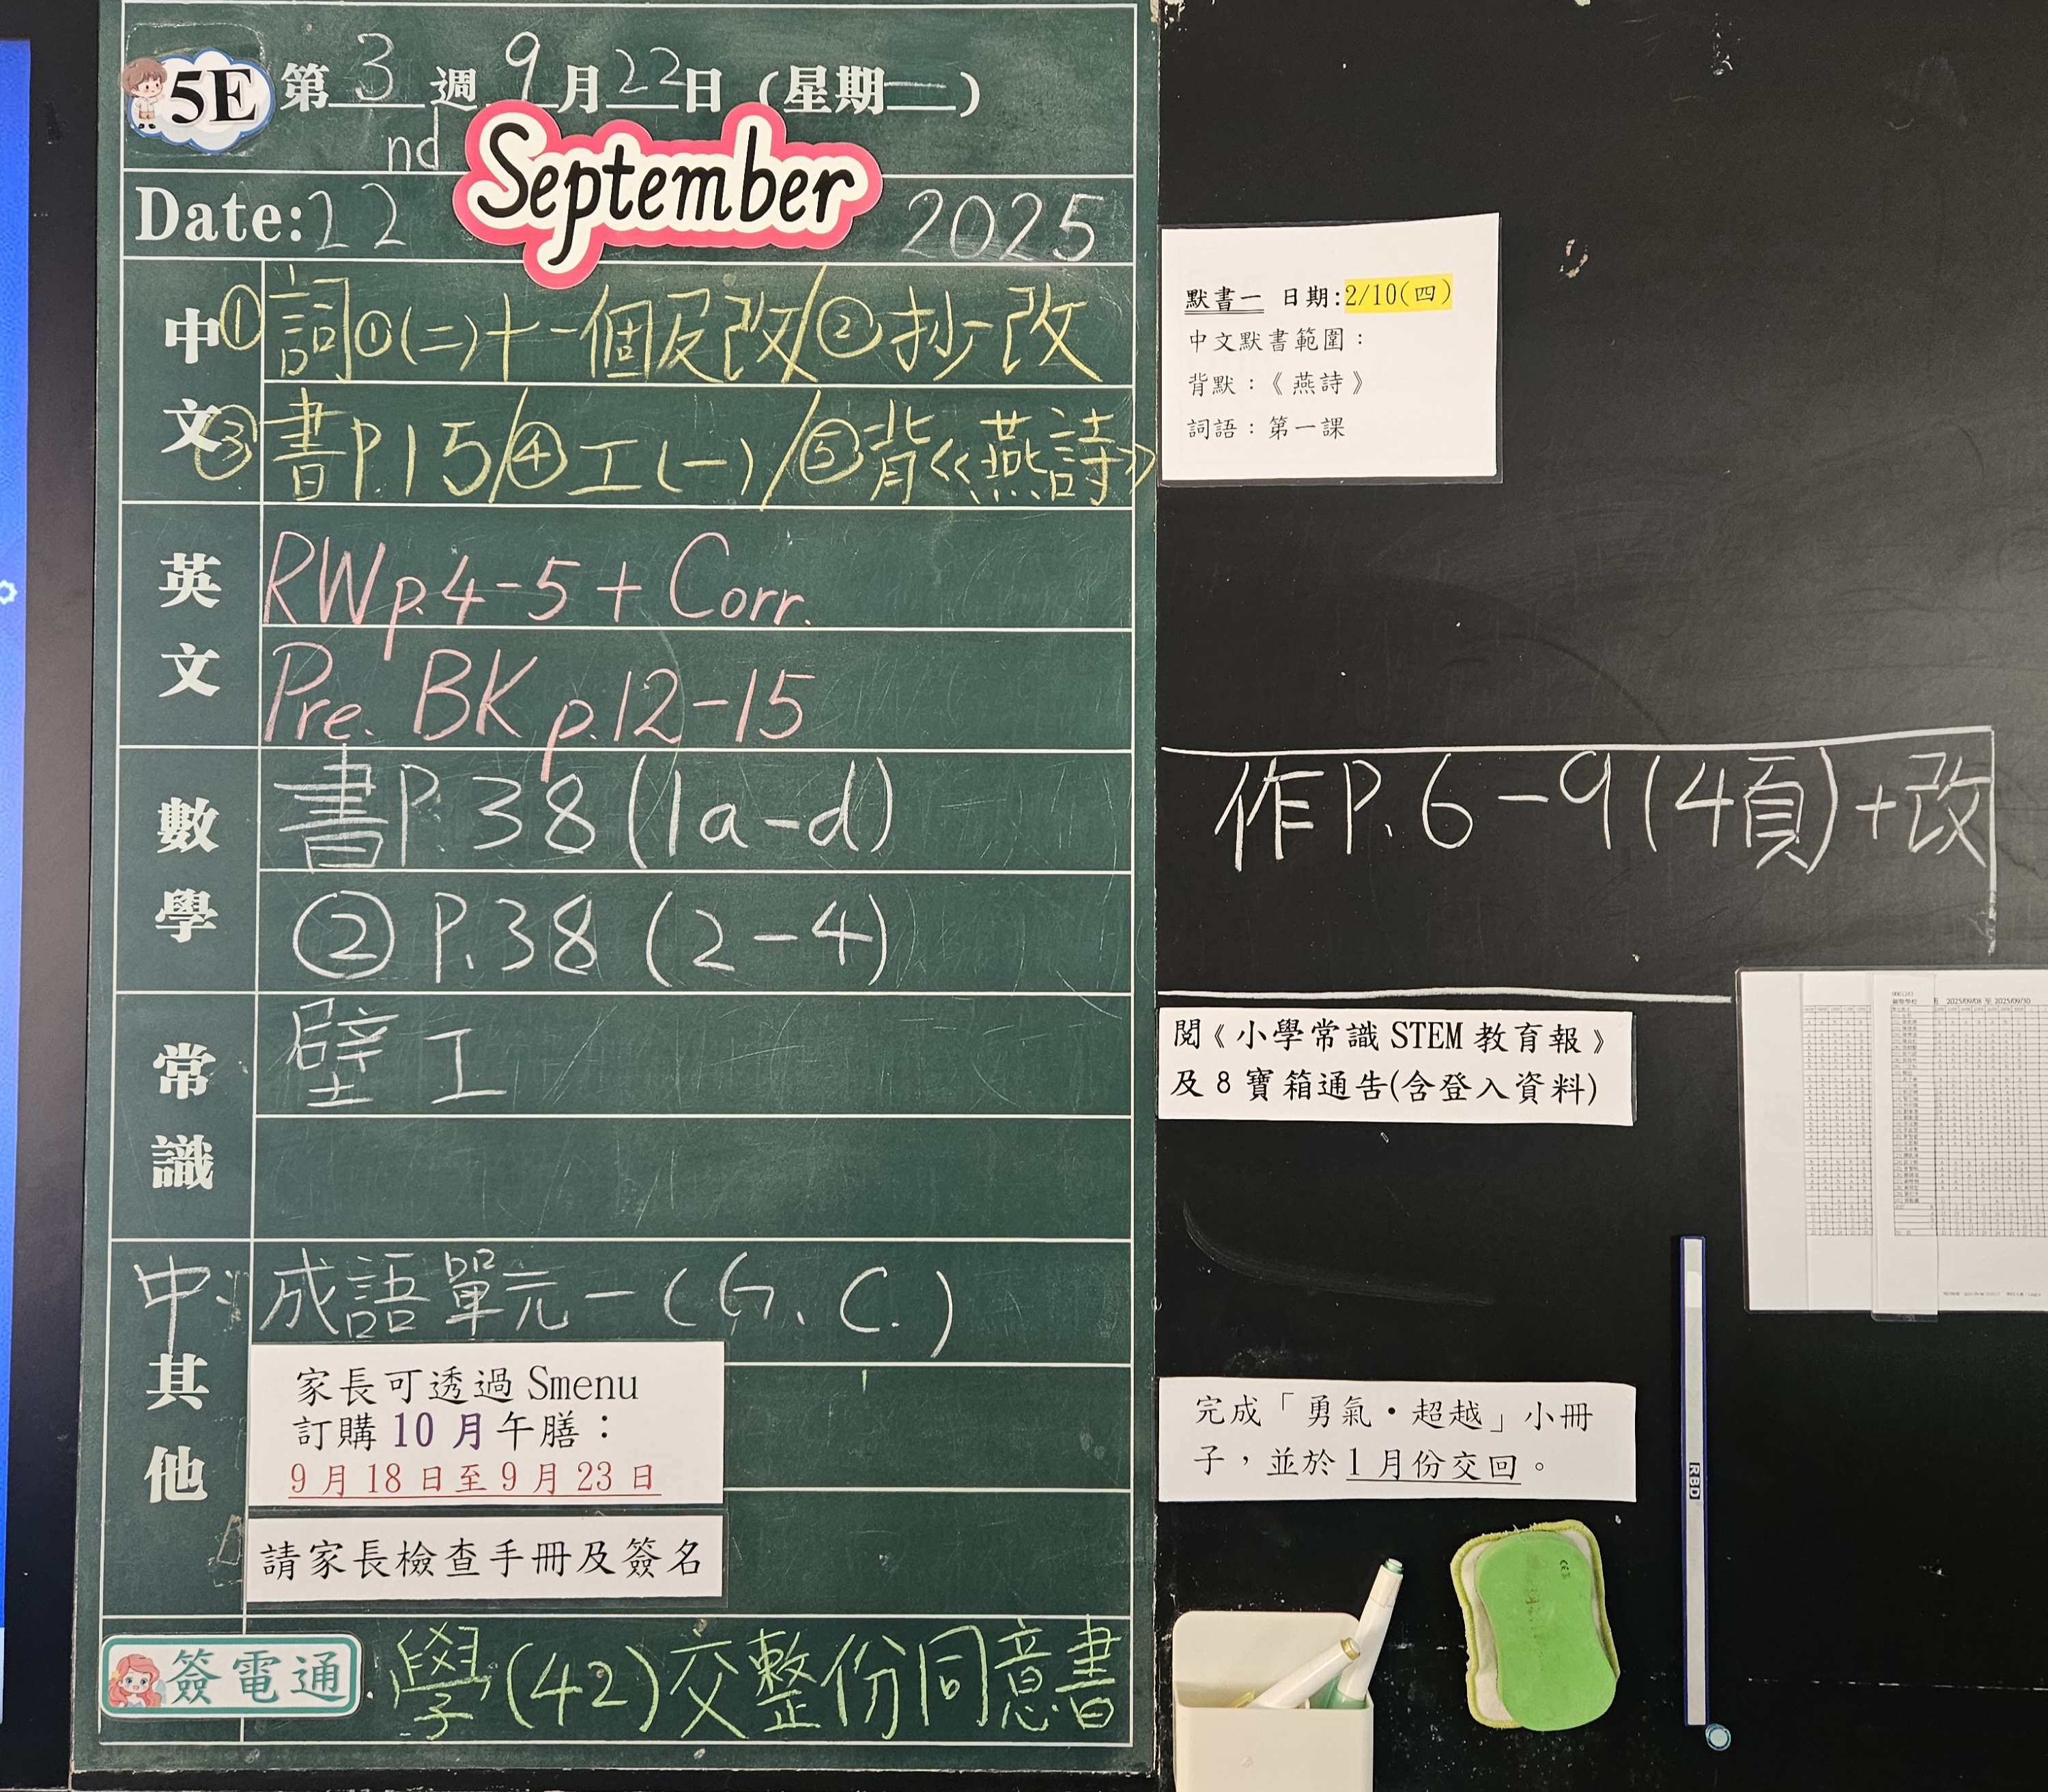 5E 第 3 週 9 月 22 日 (星期一)
nd
Date: 22 September 2025
中文
① 詞①(二)十一個反改/② 抄改
③ 書P.15/④工(一)/⑤背《燕詩》
英文
RW p.4-5 + Corr.
Pre. BK p.12-15
數學
書P.38 (1a-d)
② P.38 (2-4)
常識
壁 工
中:成語單元一(G.C.)
其他
家長可透過 Smenu
訂購 10 月午膳：
9 月 18 日至 9 月 23 日
請家長檢查手冊及簽名
簽電通
學(42)交整份同意書
默書一 日期:2/10(四)
中文默書範圍：
背默：《燕詩》
詞語：第一課
作P.6-9(4頁)+改
閱《小學常識 STEM 教育報》
及 8 寶箱通告(含登入資料)
2025/09/08 至 2025/09/30
完成「勇氣•超越」小冊
子，並於 1 月份交回。
RBD